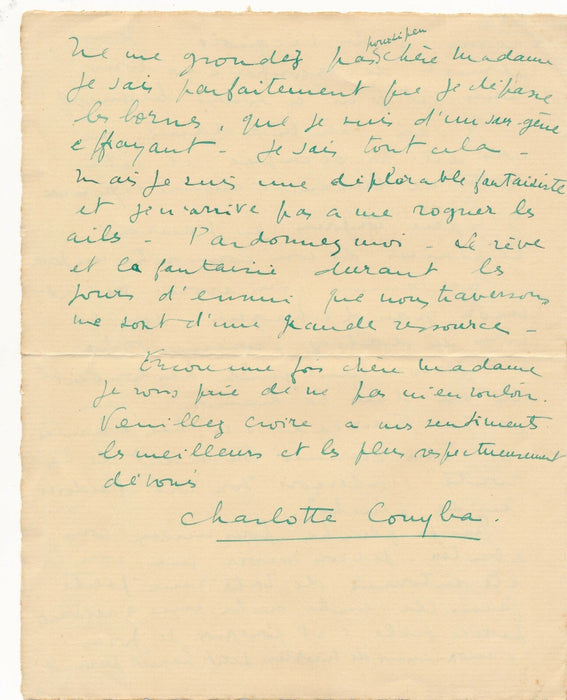 pour si peu
Ne me grondez pas chère Madame
Je sais parfaitement que je dépasse
les bornes, que je suis d'un sans-gêne
effrayant - Je sais tout cela -
Mais je suis une déplorable fantaisiste
et je n'arrive pas a me rogner les
ailes - Pardonnez moi - Le rêve
et la fantaisie durant les
jours d'ennui que nous traversons
me sont d'une grande ressource -
Encore une fois chère Madame
Je vous prie de ne pas m'en vouloir.
Veuillez croire a mes sentiments
les meilleurs et les plus respectueusement
dévoués
Charlotte Conyba.